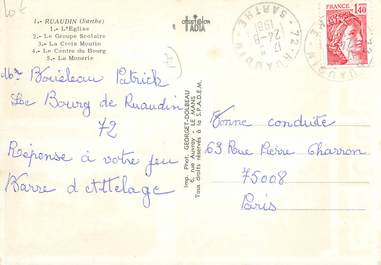 10€
1.- RUAUDIN (Sarthe)
1.- L'Eglise
2.- Le Groupe Scolaire
3.- La Croix Moutin
4.- Le Centre du Bourg
5.- La Monerie
Mr Bouéleau Patrick
Le Bourg de Ruaudin
72
Réponse à votre jeu
Barre d'Attelage
Imp. Phot. GEORGET-DOLBEAU
6, rue Auvray - LE MANS
Tous droits réservés à la S.P.A.D.E.M.
72 RUAUDIN
SARTHE
17
24-8
1981
1,40
Bonne conduite
63 Rue Pierre Charron
75008
Paris